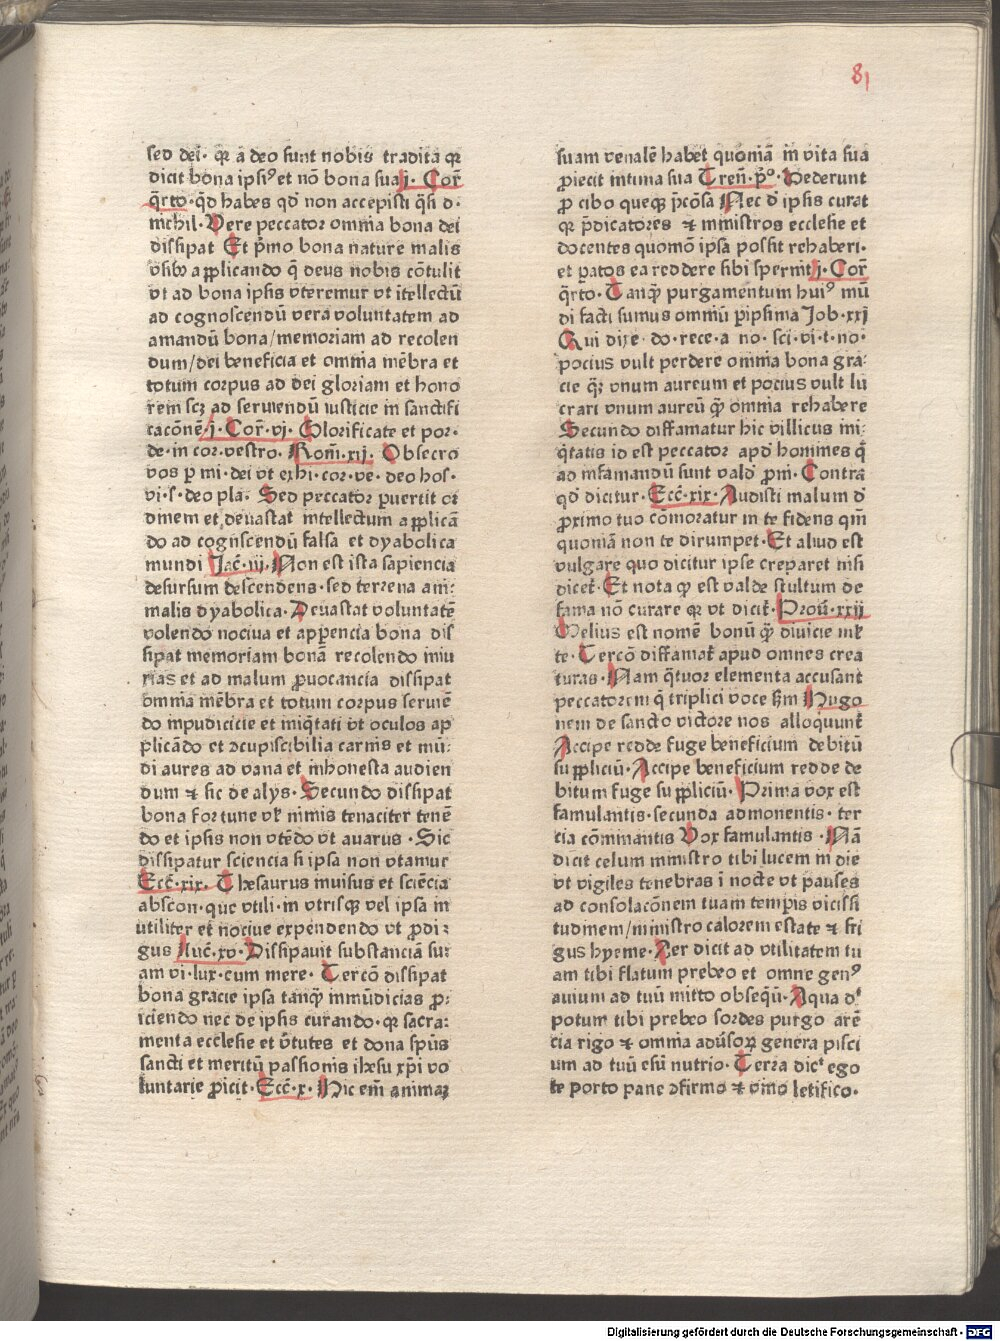 81
sed dei· qꝛ a deo sunt nobis tradita qꝛ
dicit bona ipsiꝰ et nō bona sua j· Coꝝ
q̄rto· q̄d habes qd non accepisti q̄si d·
nichil· Uere peccator omnia bona dei
dissipat Et pͥmo bona nature malis
vsibꝰ applicando q̄ deus nobis cōtulit
vt ad bona ipsis vteremur vt itellectū
ad cognoscendū vera voluntatem ad
amandū bona/memoriam ad recolen
dum/dei beneficia et omnia mēbra et
totum corpus ad dei gloriam et hono
rem scꝫ ad seruiendū iusticie in sanctifi
cacōnē· j· Cor̄· vj· Glorificate et por·
de·in cor·vestro· Rom̄·xij· Obsecro
vos ꝑ mi·dei vt exhi·cor·ve·deo hos·
vi·s·deo pla· Sed peccator ꝑuertit or
dinem et deuastat intellectum applicā
do ad cognscendū falsa et dyabolica
mundi Jac̄·iij· Non est ista sapiencia
desursum descendens·sed terrena ani:
malis dyabolica· Deuastat voluntatē
volendo nociua et apꝑencia bona dis
sipat memoriam bonā recolendo iniu
rias et ad malum ꝓuocancia dissipat
omnia mēbra et totum corpus seruiē
do inpudicicie et iniq̄tati vt oculos ap
plicādo et ɔcupiscibilia carnis et mū:
di aures ad vana et inhonesta audien
dum ⁊ sic de alys· Secundo dissipat
bona fortune vl̓ nimis tenaciter tenē
do et ipsis non vtēdo vt auarus · Sic
dissipatur sciencia si ipsa non vtamur
Ecc̄·xix· Thesaurus inuisus et sciēcia
abscon·que vtili·in vtrisqꝫ vel ipsa in
utiliter et nociue expendendo vt ꝓdi:
gus Luc̄·xv· Dissipauit substanciā su:
am vi·lux·cum mere· Tercō dissipat
bona gracie ipsa tanqꝫ̄ immūdicias ꝓ:
iciendo nec de ipsis curando·qꝛ sacra:
menta ecclesie et v̓tutes et dona spūs
sancti et meritū passionis ihesu xp̄i vo
luntarie ꝓicit· Ecc̄·x· Hic em̄ animaꝫ
suam venalē habet quoniā in vita sua
ꝓiecit intima sua Tren̄·pͥº· Dederunt
ꝓ cibo queqꝫ p̄cōsa Nec d̓ ipsis curat
qꝛ p̄dicatores ⁊ ministros ecclesie et
docentes quomō ipsa possit rehaberi·
et patos ea reddere sibi spernit j· Cor̄
q̄rto· Tanqꝫ̄ purgamentum huiꝰ mū
di facti sumus omniū ꝑipsima Job·xxj
Qui dixe·do·rece·a no·sci·vi·t·no·
pocius vult perdere omnia bona gra:
cie q̄ꝫ vnum aureum et pocius vult lu
crari vnum aureū qꝫ̄ omnia rehabere
Secundo diffamatur hic villicus ini:
q̄tatis id est peccator apd̓ homines q̄
ad infamandū sunt vald̓ pro̅ni· Contra
qd̓ dicitur· Ecc̄·xix· Audisti malum d̓
ꝓximo tuo cōmoratur in te fidens qm̄
quoniā non te dirumpet· Et aliud est
vulgare quo dicitur ipse creparet nisi
dicet̓· Et nota ꝙ est valde stultum de
fama nō curare qꝛ vt dicit̓· Prou̅·xxij
Melius est nomē bonū qꝫ̄ diuicie ml̓
te· Tercō diffamat̓ apud omnes crea
turas· Nam q̄tuor elementa accusant
peccatorem q̄ triplici voce ẞm Hugo
nem de sancto victore nos alloquunt̓
Accipe redde fuge beneficium debitū
suppliciū· Accipe beneficium redde de
bitum fuge suppliciū· Prima vox est
famulantis·secunda admonentis· ter
cia cōminantis Uox famulantis · Nā
dicit celum ministro tibi lucem in die
vt vigiles tenebras i nocte vt pauses
ad consolacōnem tuam temꝑis vicissi
tudinem/ministro calorem estate ⁊ fri
gus hyeme· Aer dicit ad vtilitatem tu
am tibi flatum prebeo et omne genꝰ
auium ad tuū mitto obseqū· Aqua d̓
potum tibi prebeo sordes purgo arē
cia rigo ⁊ omnia adu̓soꝝ genera pisci
um ad tuū esū nutrio· Terra dic̓ ego
te porto pane ɔfirmo ⁊ oīno letifico·
Digitalisierung gefördert durch die Deutsche Forschungsgemeinschaft - DFG